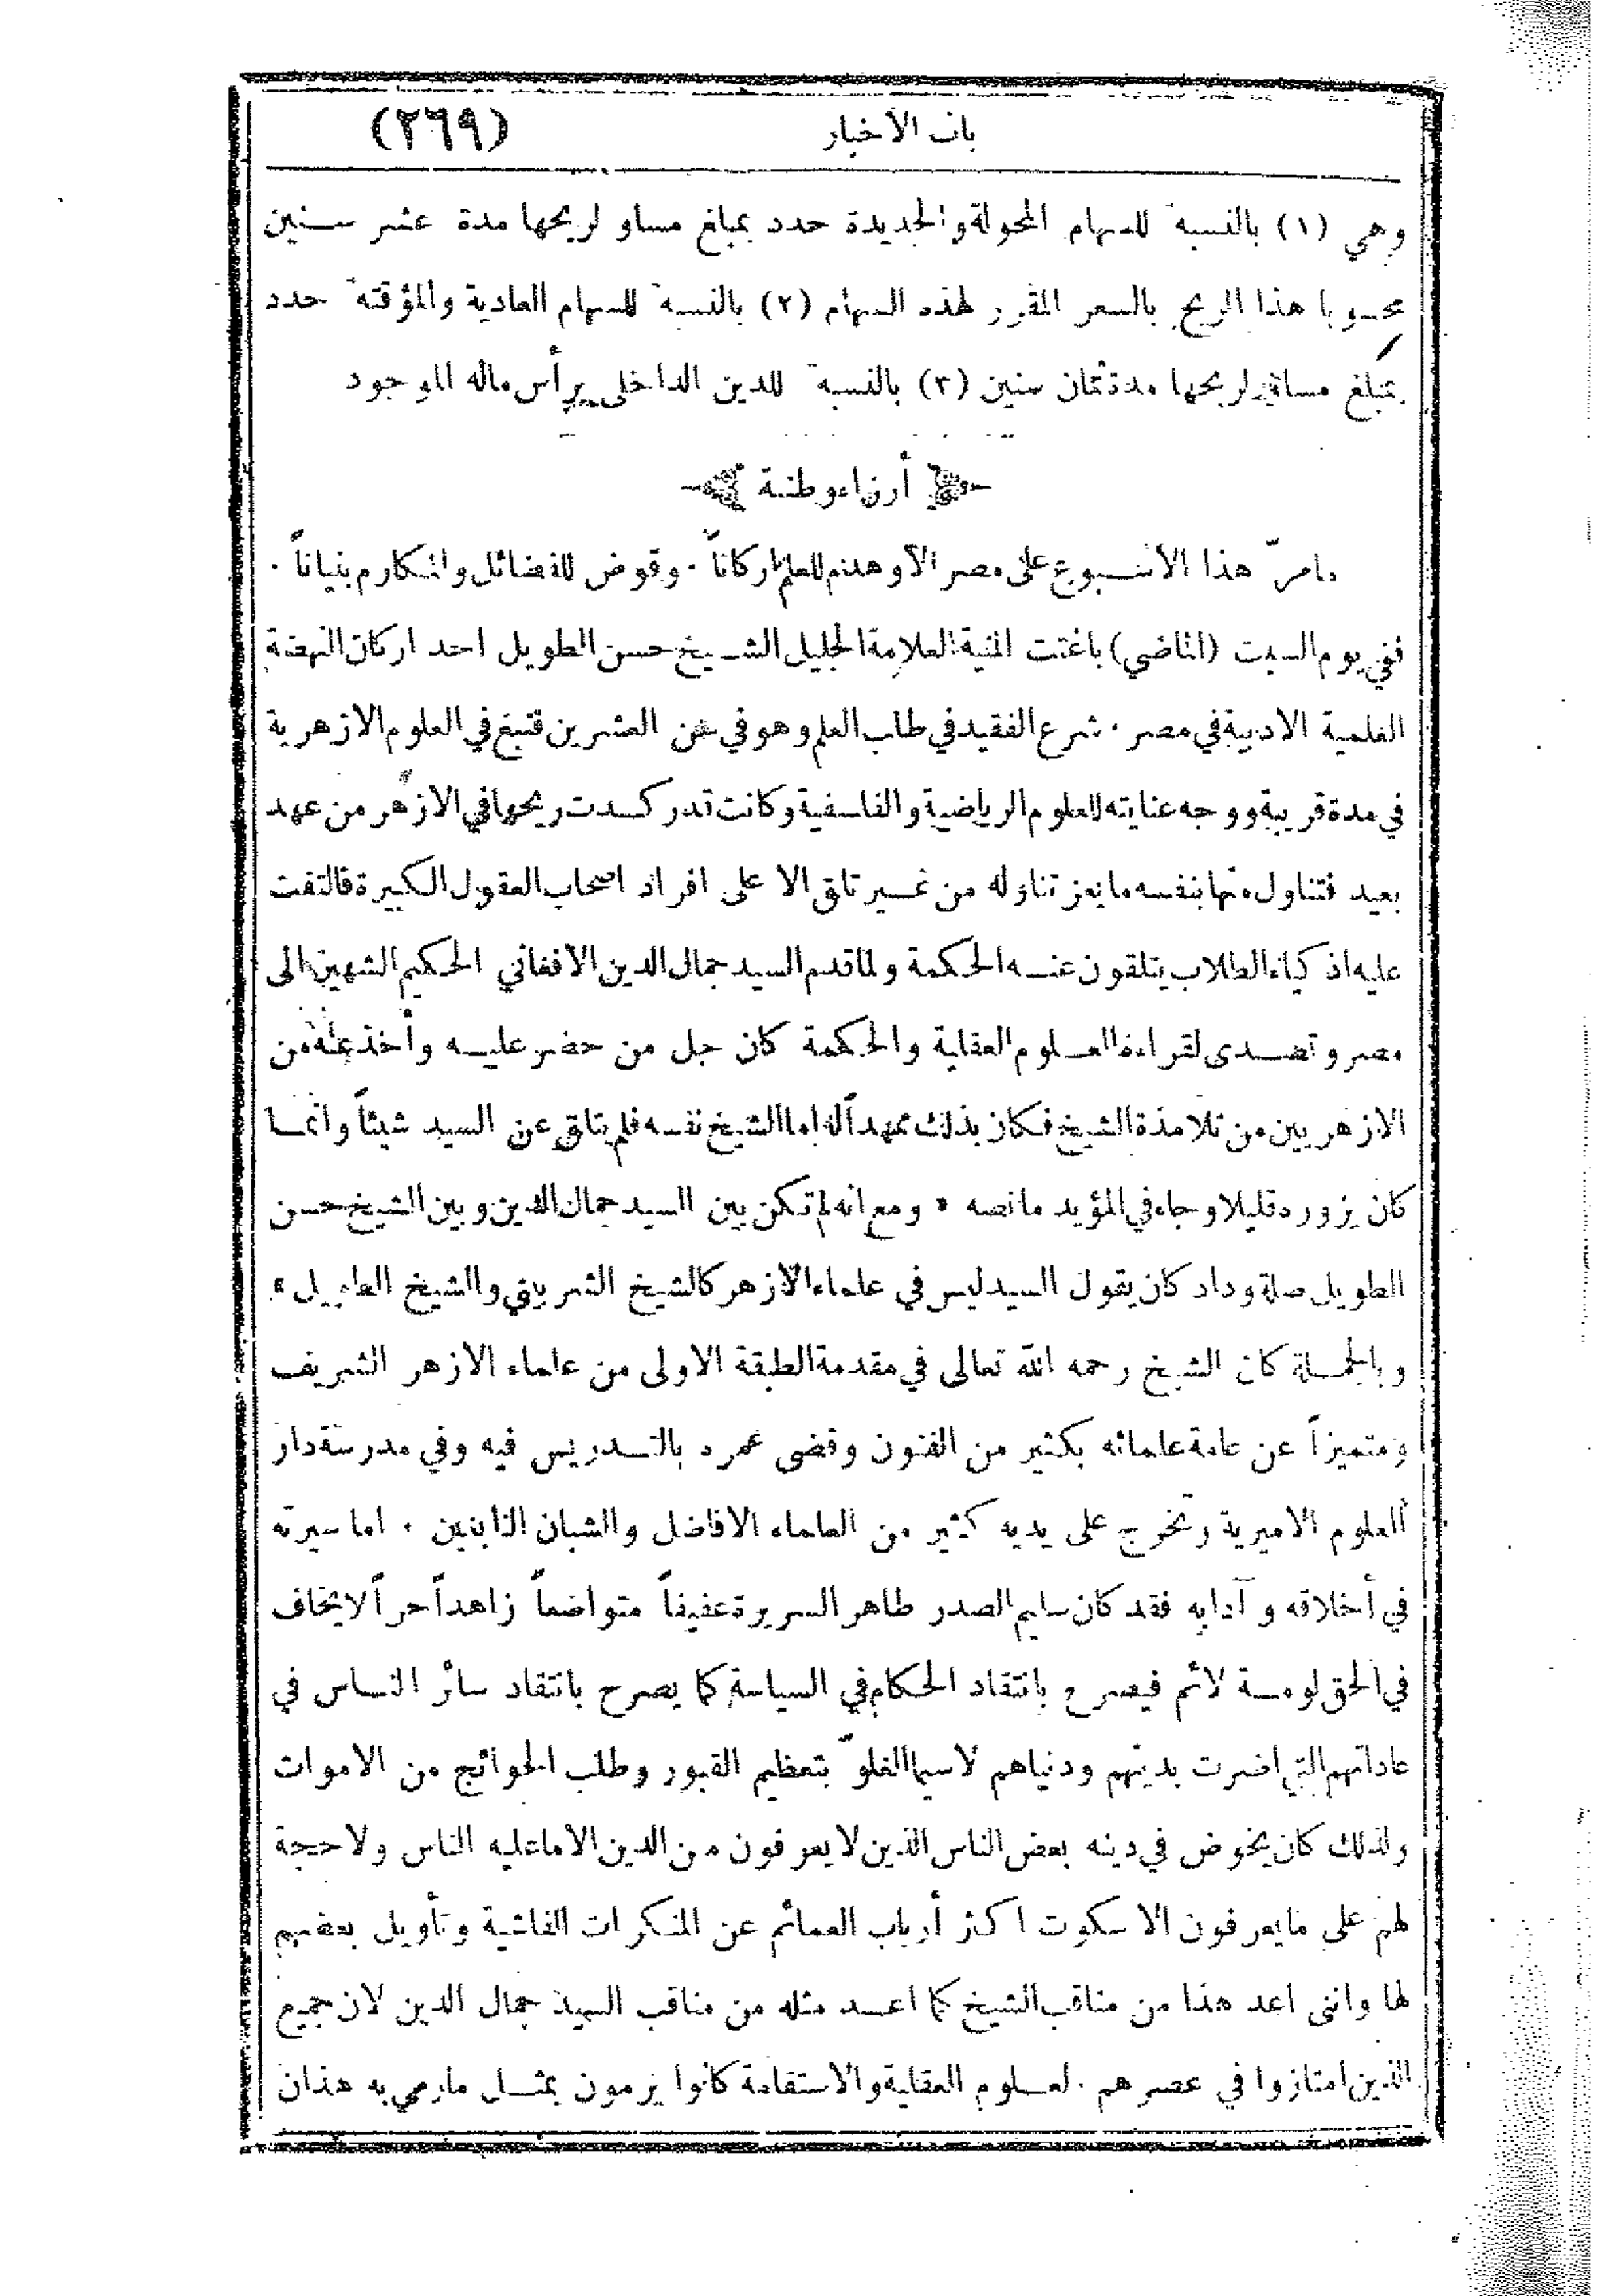 باب الاخبار (٢٦٩)
وهي (١) بالنسبة للسهام المحولة والجديدة حدد بمبلغ مساو لربحها مدة عشر سنين
محسوبا هذا الربح بالسعر المقرر لهذه السهام (٢) بالنسبة للسهام العادية والمؤقتة حدد
بمبلغ مساو لربحها مدة ثمان سنين (٣) بالنسبة للدين الداخلي برأس ماله الموجود
أرزاء وطنية
مامرّ هذا الاسبوع على مصر الا وهدم للعلم اركاناً . وقوض للفضائل والمكارم بنياناً .
ففي يوم السبت (الماضي) باغتت المنية العلامة الجليل الشيخ حسن الطويل احد اركان النهضة
العلمية الادبية في مصر . شرع الفقيد في طلب العلم وهو في سن العشرين فنبغ في العلوم الازهرية
في مدة قريبة ووجه عنايته للعلوم الرياضية والفلسفية وكانت قدر كدت ريحها في الازهر من عهد
بعيد فتناول منها بنفسه ما يعز تناوله من غير تلق الا على افراد اصحاب العقول الكبيرة فالتفت
عليه اذكياء الطلاب يتلقون عنه الحكمة ولما قدم السيد جمال الدين الافغاني الحكيم الشهير الى
مصر وتصدى لقراءة العلوم العقلية والحكمة كان جل من حضر عليه وأخذ عنه من
الازهريين من تلامذة الشيخ فكان بذلك ممهداً له اما الشيخ نفسه فلم يتلق عن السيد شيئاً وانما
كان يزوره قليلا وجاء في المؤيد ما نصه « ومع انه لم تكن بين السيد جمال الدين وبين الشيخ حسن
الطويل صلة وداد كان يقول السيد ليس في علماء الازهر كالشيخ الشربيني والشيخ الطويل »
وبالجملة كان الشيخ رحمه الله تعالى في مقدمة الطبقة الاولى من علماء الازهر الشريف
ومتميزاً عن عامة علمائه بكثير من الفنون وقضى عمره بالتدريس فيه وفي مدرسة دار
العلوم الاميرية وتخرج على يديه كثير من العلماء الافاضل والشبان النابغين . اما سيرته
في أخلاقه و آدابه فقد كان سليم الصدر طاهر السريرة عفيفاً متواضعاً زاهداً حراً لا يخاف
في الحق لومة لائم فيصرح بانتقاد الحكام في السياسة كما يصرح بانتقاد سائر الناس في
عاداتهم التي اضرت بدينهم ودنياهم لاسيما الغلوّ بتعظيم القبور وطلب الحوائج من الاموات
ولذلك كان يخوض في دينه بعض الناس الذين لا يعرفون من الدين الا ما عليه الناس ولا حجة
لهم على ما يعرفون الا سكوت اكثر أرباب العمائم عن المنكرات الفاشية وتأويل بعضهم
لها وانني اعد هذا من مناقب الشيخ كما اعد مثله من مناقب السيد جمال الدين لان جميع
الذين امتازوا في عصرهم بالعلوم العقلية والاستقامة كانوا يرمون بمثل مارمي به هذان